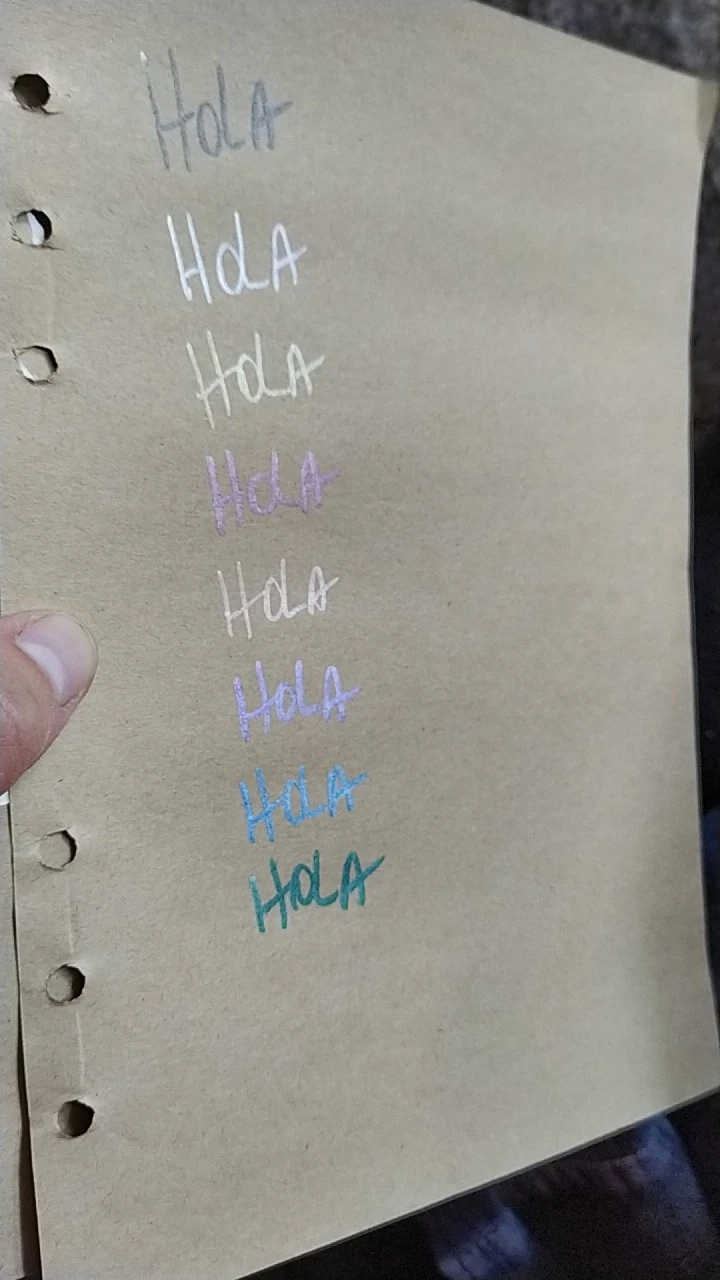 HOLA
HOLA
HOLA
HOLA
HOLA
HOLA
HOLA
HOLA